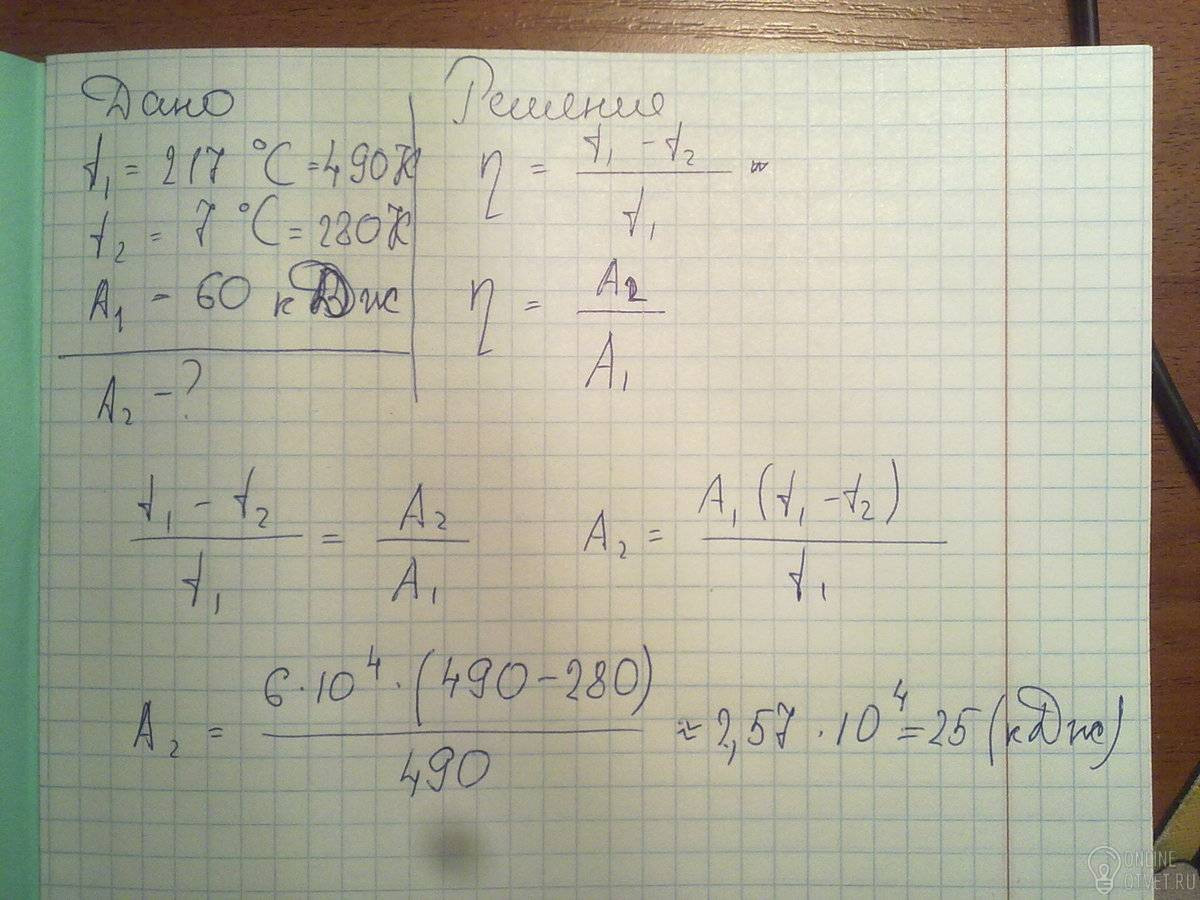 Дано
t₁ = 217 °C = 490К
t₂ = 7 °C = 280К
A₁ - 60 кДж
A₂ - ?
Решение
η = (t₁ - t₂) / t₁ =
η = A₂ / A₁
(t₁ - t₂) / t₁ = A₂ / A₁
A₂ = A₁ (t₁ - t₂) / t₁
A₂ = 6·10⁴·(490-280) / 490 ≈ 2,57·10⁴ = 25 (кДж)
ONLINE
OTVET.RU